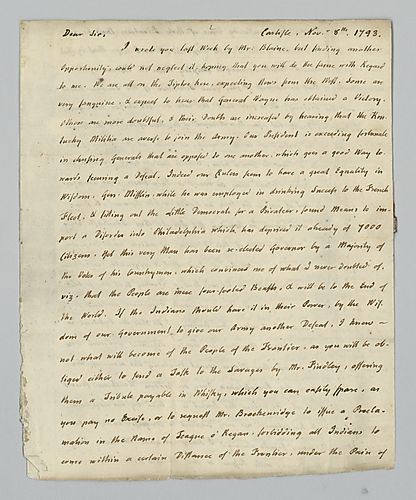 Dear Sir, Carlisle, Nov. 8th, 1793.
I wrote you last Week by Mr. Blaine, but finding another
Opportunity, could not neglect it, hoping that you will do the same with Regard
to me. We are all on the Tiptoe here, expecting News from the West. Some are
very sanguine, & expect to hear that General Wayne has obtained a Victory.
Others are more doubtful, & their Doubts are increased by hearing that the Ken-
tucky Militia are averse to join the Army. Our President is exceeding fortunate
in chusing Generals that are opposed to one another, which goes a good Way to-
wards securing a Defeat. Indeed our Rulers seem to have a great Equality in
Wisdom. Gov. Mifflin, while he was employed in drinking Success to the French
Fleet, & fitting out the Little Democrate for a Privateer, found Means to im-
port a Disorder into Philadelphia which has deprived it already of 7000
Citizens. Yet this very Man has been re-elected Governor by a Majority of
the Votes of his Countrymen, which convinced me of what I never doubted of,
viz. that the People are mere four-footed Beasts, & will be to the End of
the World. If the Indians should have it in their Power, by the Wis-
dom of our Government, to give our Army another Defeat, I know
not what will become of the People of the Frontier, as you will be ob-
liged either to send a Talk to the Savages by Mr. Findley, offering
them a Tribute payable in Whisky, which you can easily spare, as
you pay no Excise, or to request Mr. Brackenridge to issue a Procla-
mation in the Name of Teague o'Regan, forbidding all Indians to
come within a certain Distance of the Frontier, under the Pain of